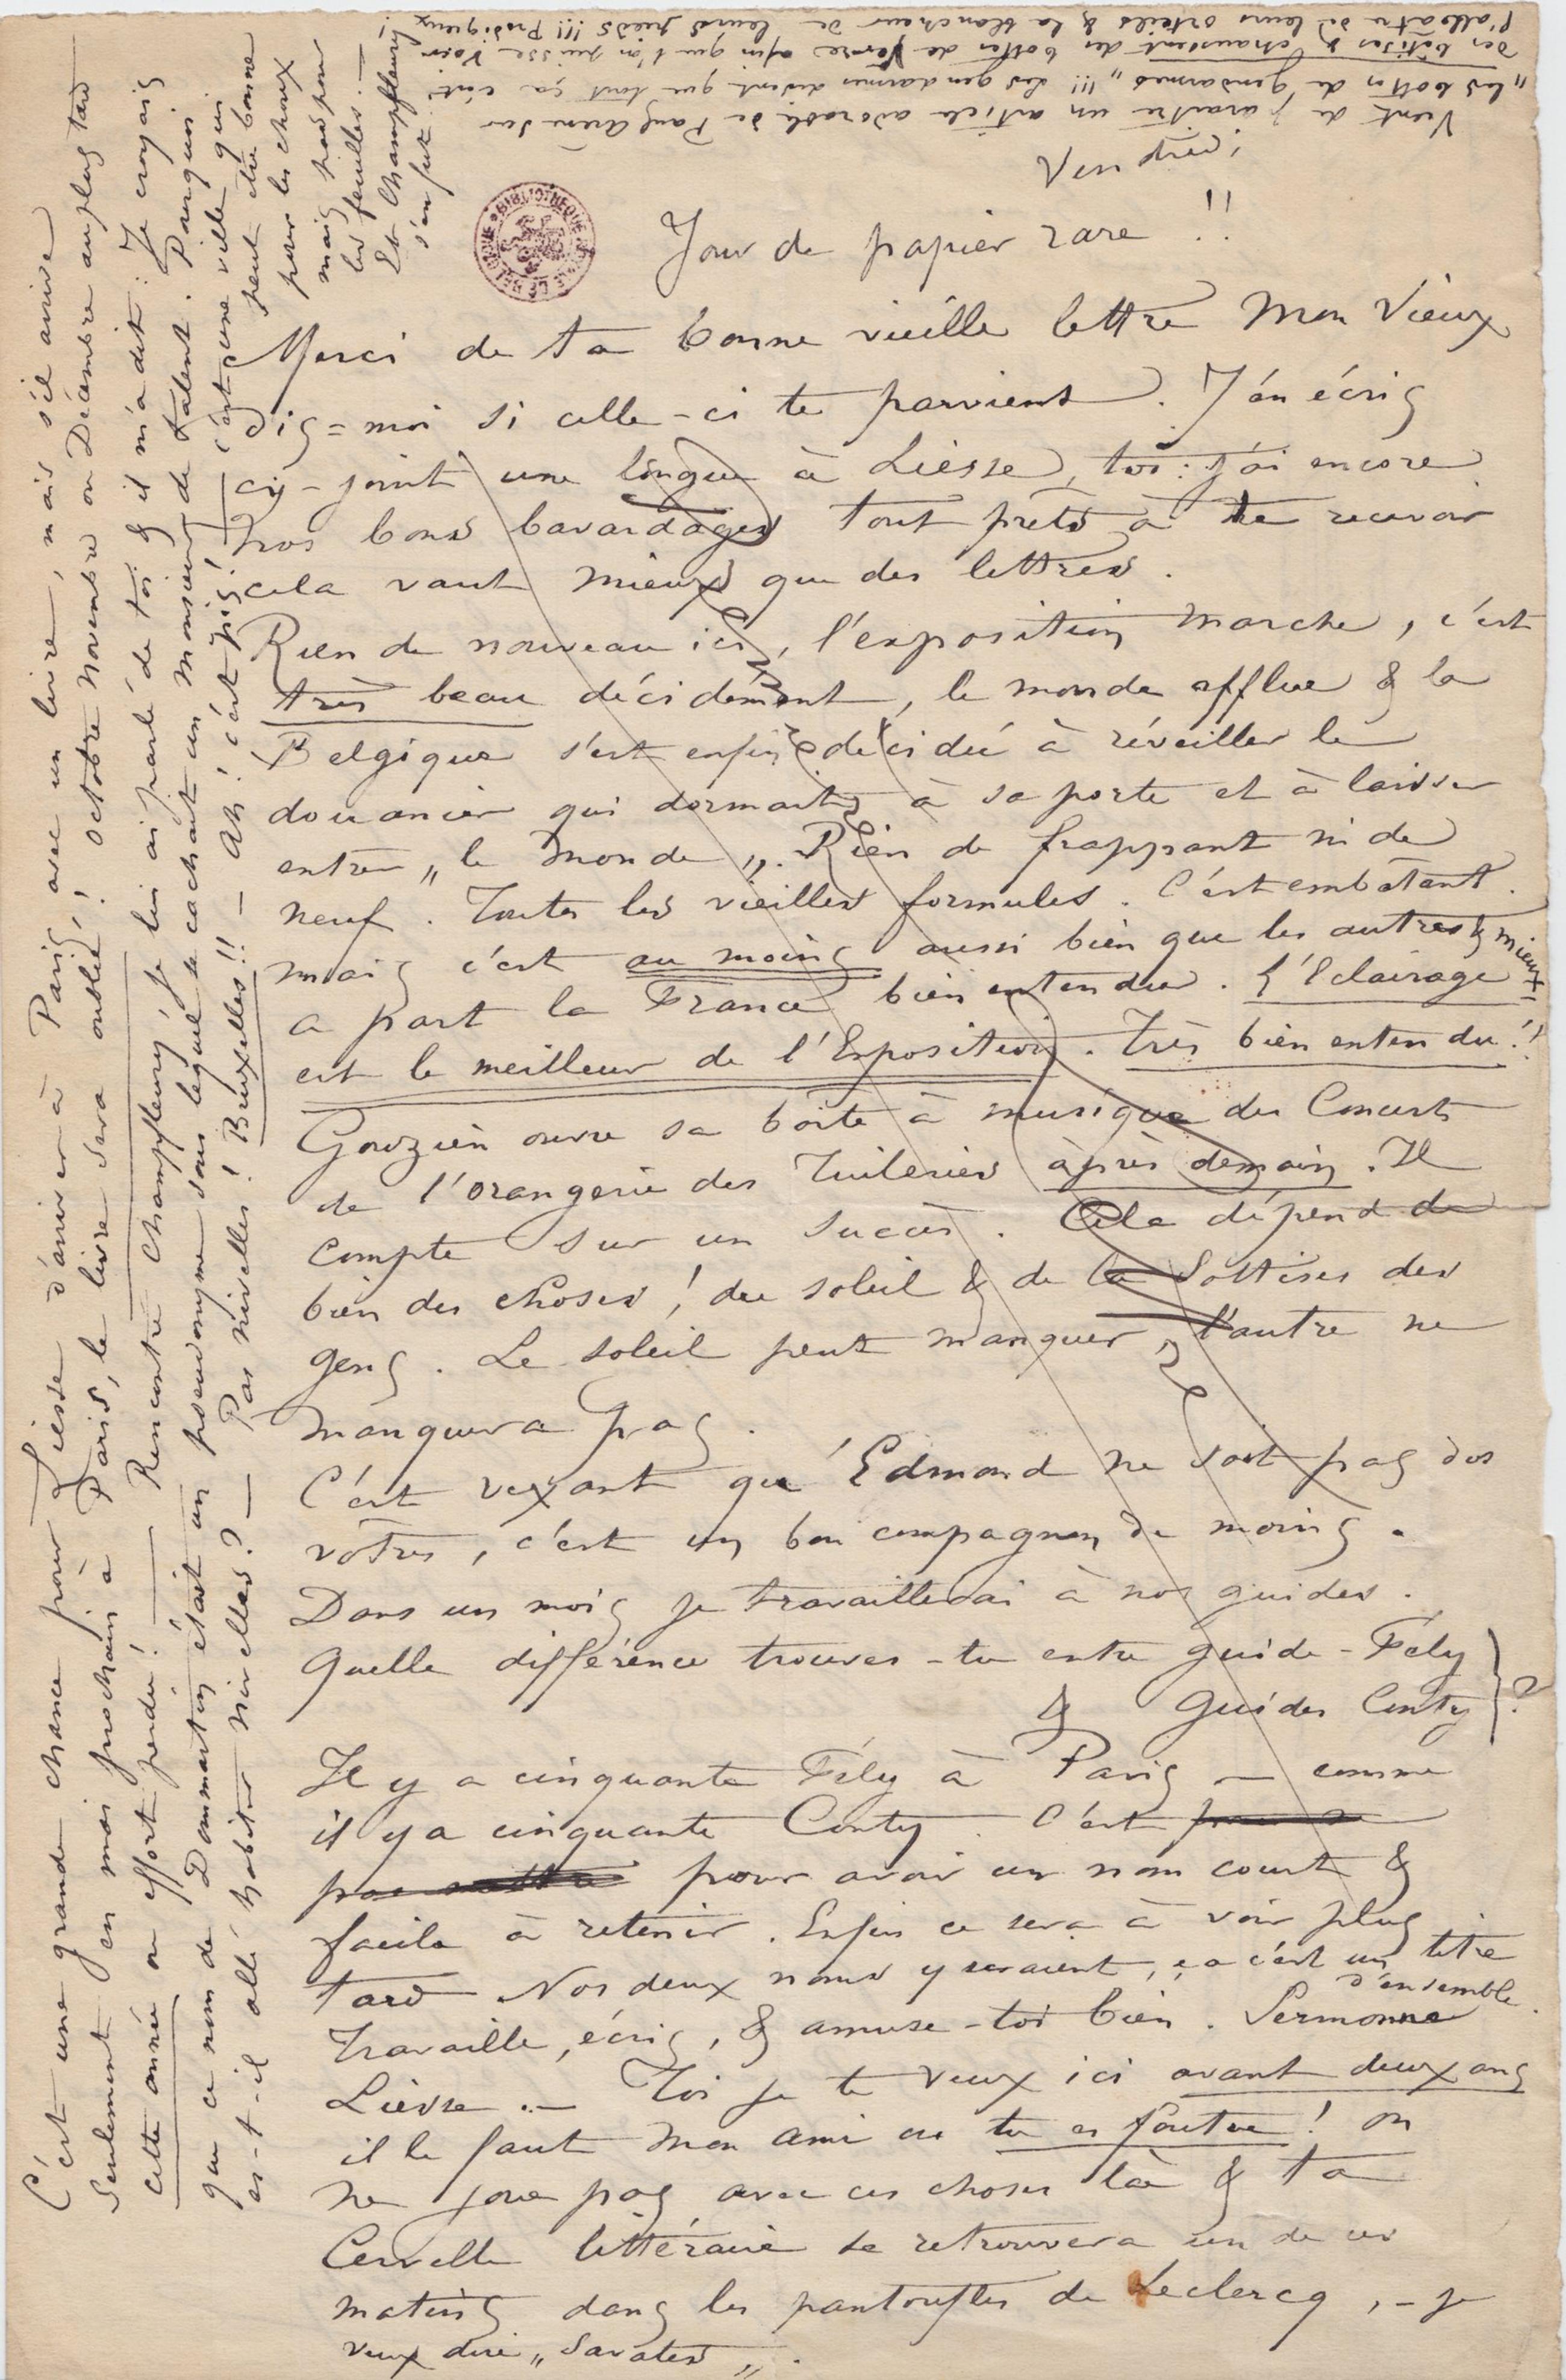 Vendredi
Jour de papier rare !!
Merci de ta bonne vieille lettre mon vieux
dis-moi si celle-ci te parvient. J'en écris
ci-joint une longue à Liesse, toi : j'ai encore
nos bons bavardages tout prêts à te recevoir
cela vaut mieux que des lettres.
Rien de nouveau ici, l'exposition marche, c'est
très beau décidément, le monde afflue & la
Belgique s'est enfin décidée à réveiller le
douanier qui dormait à sa porte et à laisser
entrer „ le monde „. Rien de frappant ni de
neuf. Toutes les vieilles formules. C'est embêtant.
mais c'est au moins aussi bien que les autres & mieux
a part la France bien entendu. L'Eclairage
est le meilleur de l'Exposition. Très bien entendu !!
Gouzien ouvre sa boîte à musique des Concerts
de l'orangerie des Tuileries après demain. Il
compte sur un succès. Cela dépend de
bien des choses ! du soleil & de la Sottises des
gens. Le soleil peut manquer, l'autre ne
manquera pas.
C'est vexant qu'Edmond ne soit pas des
vôtres, c'est un bon compagnon de moins.
Dans un mois je travaillerai à nos guides.
Quelle différence trouves-tu entre guide-Fély
& Guides Conty ?
Il y a cinquante Fély à Paris — comme
il y a cinquante Conty. C'est
pour avoir un nom court &
facile à retenir. Enfin ce sera à voir plus
tard. Nos deux noms y seraient, ça c'est un titre
d'ensemble.
Travaille, écris, & amuse-toi bien. Sermonne
Liesse. — Toi je te veux ici avant deux ans
il le faut mon ami ou tu es foutu ! on
ne joue pas avec ces choses là & ta
Cervelle littéraire se retrouvera un de ces
matins dans les pantoufles de Leclercq, - je
veux dire „ Savates „.
C'est une grande chance pour Liesse d'arriver à Paris avec un livre, mais s'il arrive
seulement en mai prochain à Paris, le livre sera oublié ! octobre novembre ou Décembre au plus tard
cette année ou effort perdu ! — Rencontré Champfleury, je lui ai parlé de toi & il m'a dit : Je croyais
que ce nom de Dommartin était un pseudonyme sous lequel se cachait un monsieur de talent. Pourquoi
est-il allé habiter Nivelles ? — Pas Nivelles ! Bruxelles !! — Ah ! c'est pis ! — c'est une ville qui
peut être bonne
pour les choux
mais pas pour
les feuilles. —
Et Champfleury
s'en fut.
Vient de paraître un article adorable de Paul Arène sur
„ les bottes de gendarmes „ !!! Les gendarmes disent que tout ça c'est
des bêtises & chaussent des bottes de verre afin que l'on puisse voir
l'albâtre de leurs orteils & la blancheur de leurs pieds !!! Prodigieux !